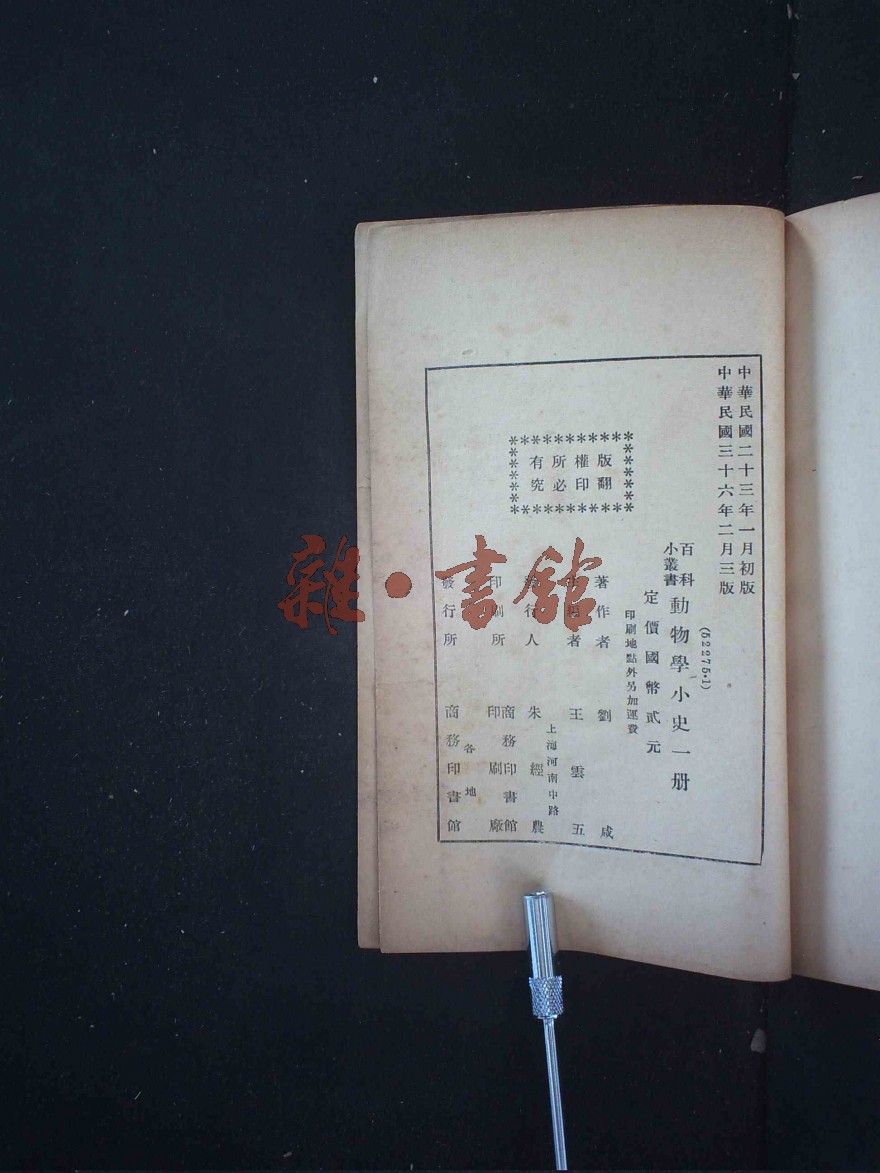 中華民國二十三年一月初版
中華民國三十六年二月三版
(52275·1)
百科小叢書 動物學小史一册
定價國幣貳元
印刷地點外另加運費
版權所有
翻印必究
著作者 劉咸
者 王雲五
上海河南中路
發行人 朱經農
印刷所 商務印書館印刷廠
各地
發行所 商務印書館
雜·書館